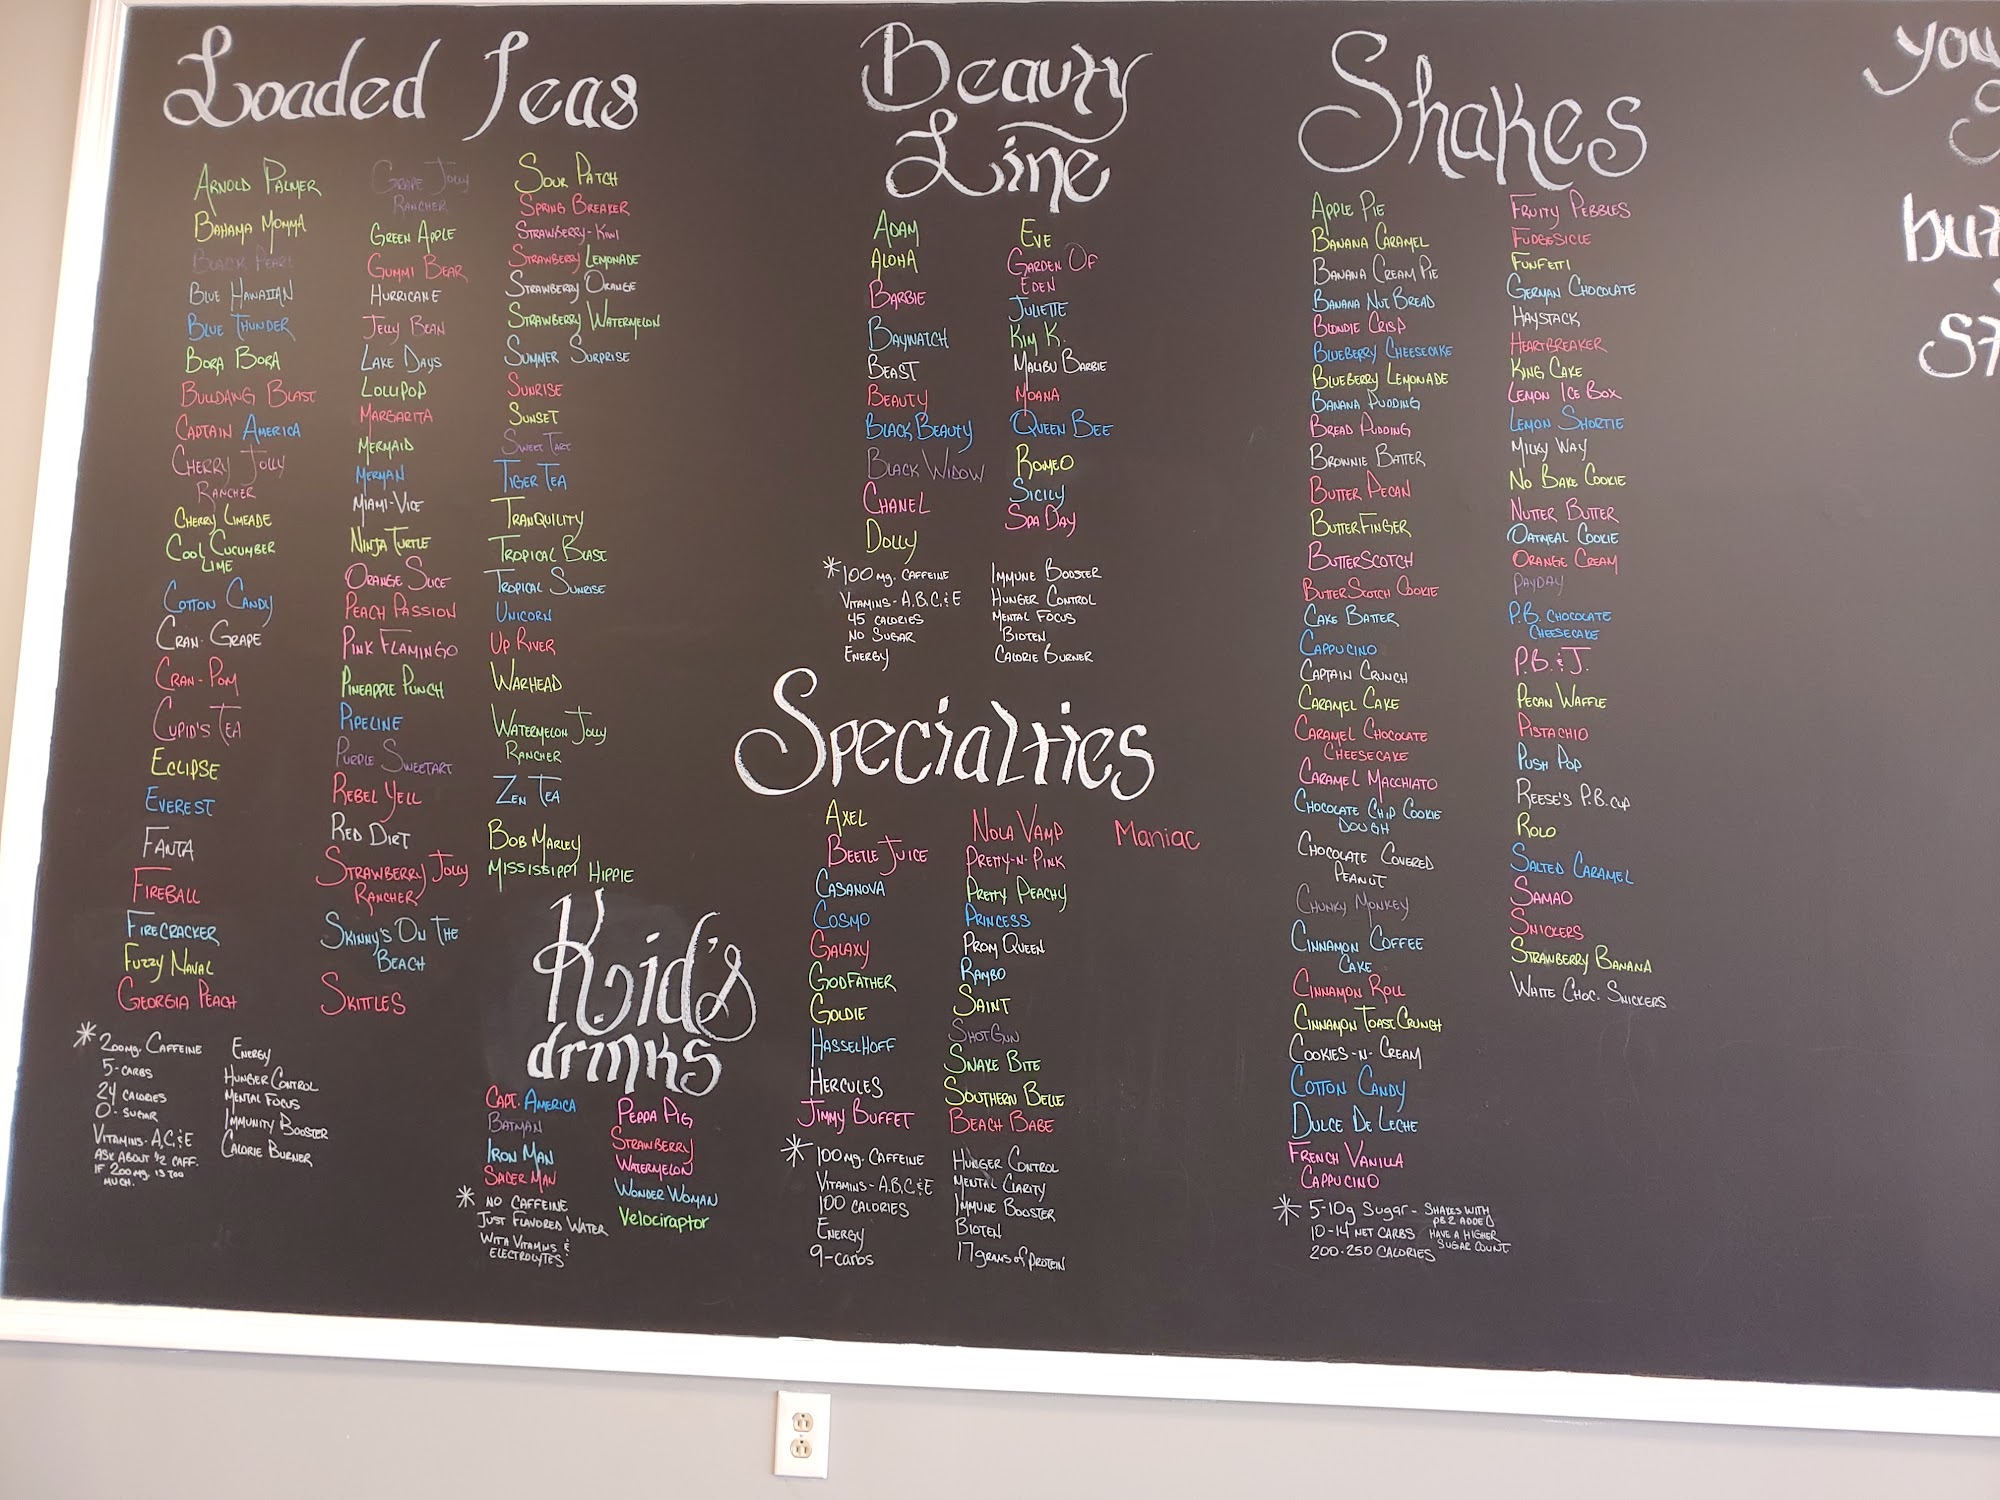 Loaded Teas
Arnold Palmer
Bahama Momma
Black Pearl
Blue Hawaiian
Blue Thunder
Bora Bora
Bulldawg Blast
Captain America
Cherry Jolly
Rancher
Cherry Limeade
Cool Cucumber
Lime
Cotton Candy
Cran-Grape
Cran-Pom
Cupid's Tea
Eclipse
Everest
Fanta
Fireball
Firecracker
Fuzzy Naval
Georgia Peach
Grape Jolly
Rancher
Green Apple
Gummi Bear
Hurricane
Jelly Bean
Lake Days
Lollipop
Margarita
Mermaid
Merman
Miami-Vice
Ninja Turtle
Orange Slice
Peach Passion
Pink Flamingo
Pineapple Punch
Pipeline
Purple Sweetart
Rebel Yell
Red Dirt
Strawberry Jolly
Rancher
Skinny's On The
Beach
Skittles
Sour Patch
Spring Breaker
Strawberry-Kiwi
Strawberry Lemonade
Strawberry Orange
Strawberry Watermelon
Summer Surprise
Sunrise
Sunset
Sweet Tart
Tiger Tea
Tranquility
Tropical Blast
Tropical Sunrise
Unicorn
Up River
Warhead
Watermelon Jolly
Rancher
Zen Tea
Bob Marley
Mississippi Hippie
* 200mg. Caffeine
5-carbs
24 calories
0-sugar
Vitamins-A,C,&E
Ask about 1/2 caff.
if 200mg. is too
much.
Energy
Hunger Control
Mental Focus
Immunity Booster
Calorie Burner
Kid's
drinks
Capt. America
Batman
Iron Man
Spider Man
Peppa Pig
Strawberry
Watermelon
Wonder Woman
Velociraptor
* No Caffeine
Just Flavored Water
With Vitamins &
Electrolytes
Beauty
Line
Adam
Aloha
Barbie
Baywatch
Beast
Beauty
Black Beauty
Black Widow
Chanel
Dolly
Eve
Garden Of
Eden
Juliette
Kim K.
Malibu Barbie
Moana
Queen Bee
Romeo
Sicily
Spa Day
* 100 mg. caffeine
Vitamins-A,B,C,&E
45 calories
No Sugar
Energy
Immune Booster
Hunger Control
Mental Focus
Bioten
Calorie Burner
Specialties
Axel
Beetle Juice
Casanova
Cosmo
Galaxy
Godfather
Goldie
Hasselhoff
Hercules
Jimmy Buffet
Nola Vamp
Pretty-n-Pink
Pretty Peachy
Princess
Prom Queen
Rambo
Saint
ShotGun
Snake Bite
Southern Belle
Beach Babe
Maniac
* 100mg. Caffeine
Vitamins-A,B,C&E
100 calories
Energy
9-carbs
Hunger Control
Mental Clarity
Immune Booster
Bioten
17grams of protein
Shakes
Apple Pie
Banana Caramel
Banana Cream Pie
Banana Nut Bread
Blondie Crisp
Blueberry Cheesecake
Blueberry Lemonade
Banana Pudding
Bread Pudding
Brownie Batter
Butter Pecan
ButterFinger
ButterScotch
ButterScotch Cookie
Cake Batter
Cappucino
Captain Crunch
Caramel Cake
Caramel Chocolate
Cheesecake
Caramel Macchiato
Chocolate Chip Cookie
Dough
Chocolate Covered
Peanut
Chunky Monkey
Cinnamon Coffee
Cake
Cinnamon Roll
Cinnamon Toast Crunch
Cookies-n-Cream
Cotton Candy
Dulce De Leche
French Vanilla
Cappucino
Fruity Pebbles
Fudgesicle
Funfetti
German Chocolate
Haystack
Heartbreaker
King Cake
Lemon Ice Box
Lemon Shortie
Milky Way
No Bake Cookie
Nutter Butter
Oatmeal Cookie
Orange Cream
Payday
P.B. chocolate
Cheesecake
P.B.&J.
Pecan Waffle
Pistachio
Push Pop
Reese's P.B. cup
Rolo
Salted Caramel
Samao
Snickers
Strawberry Banana
White Choc. Snickers
* 5-10g Sugar - Shakes with
PB2 added
10-14 net carbs have a higher
sugar count
200-250 calories